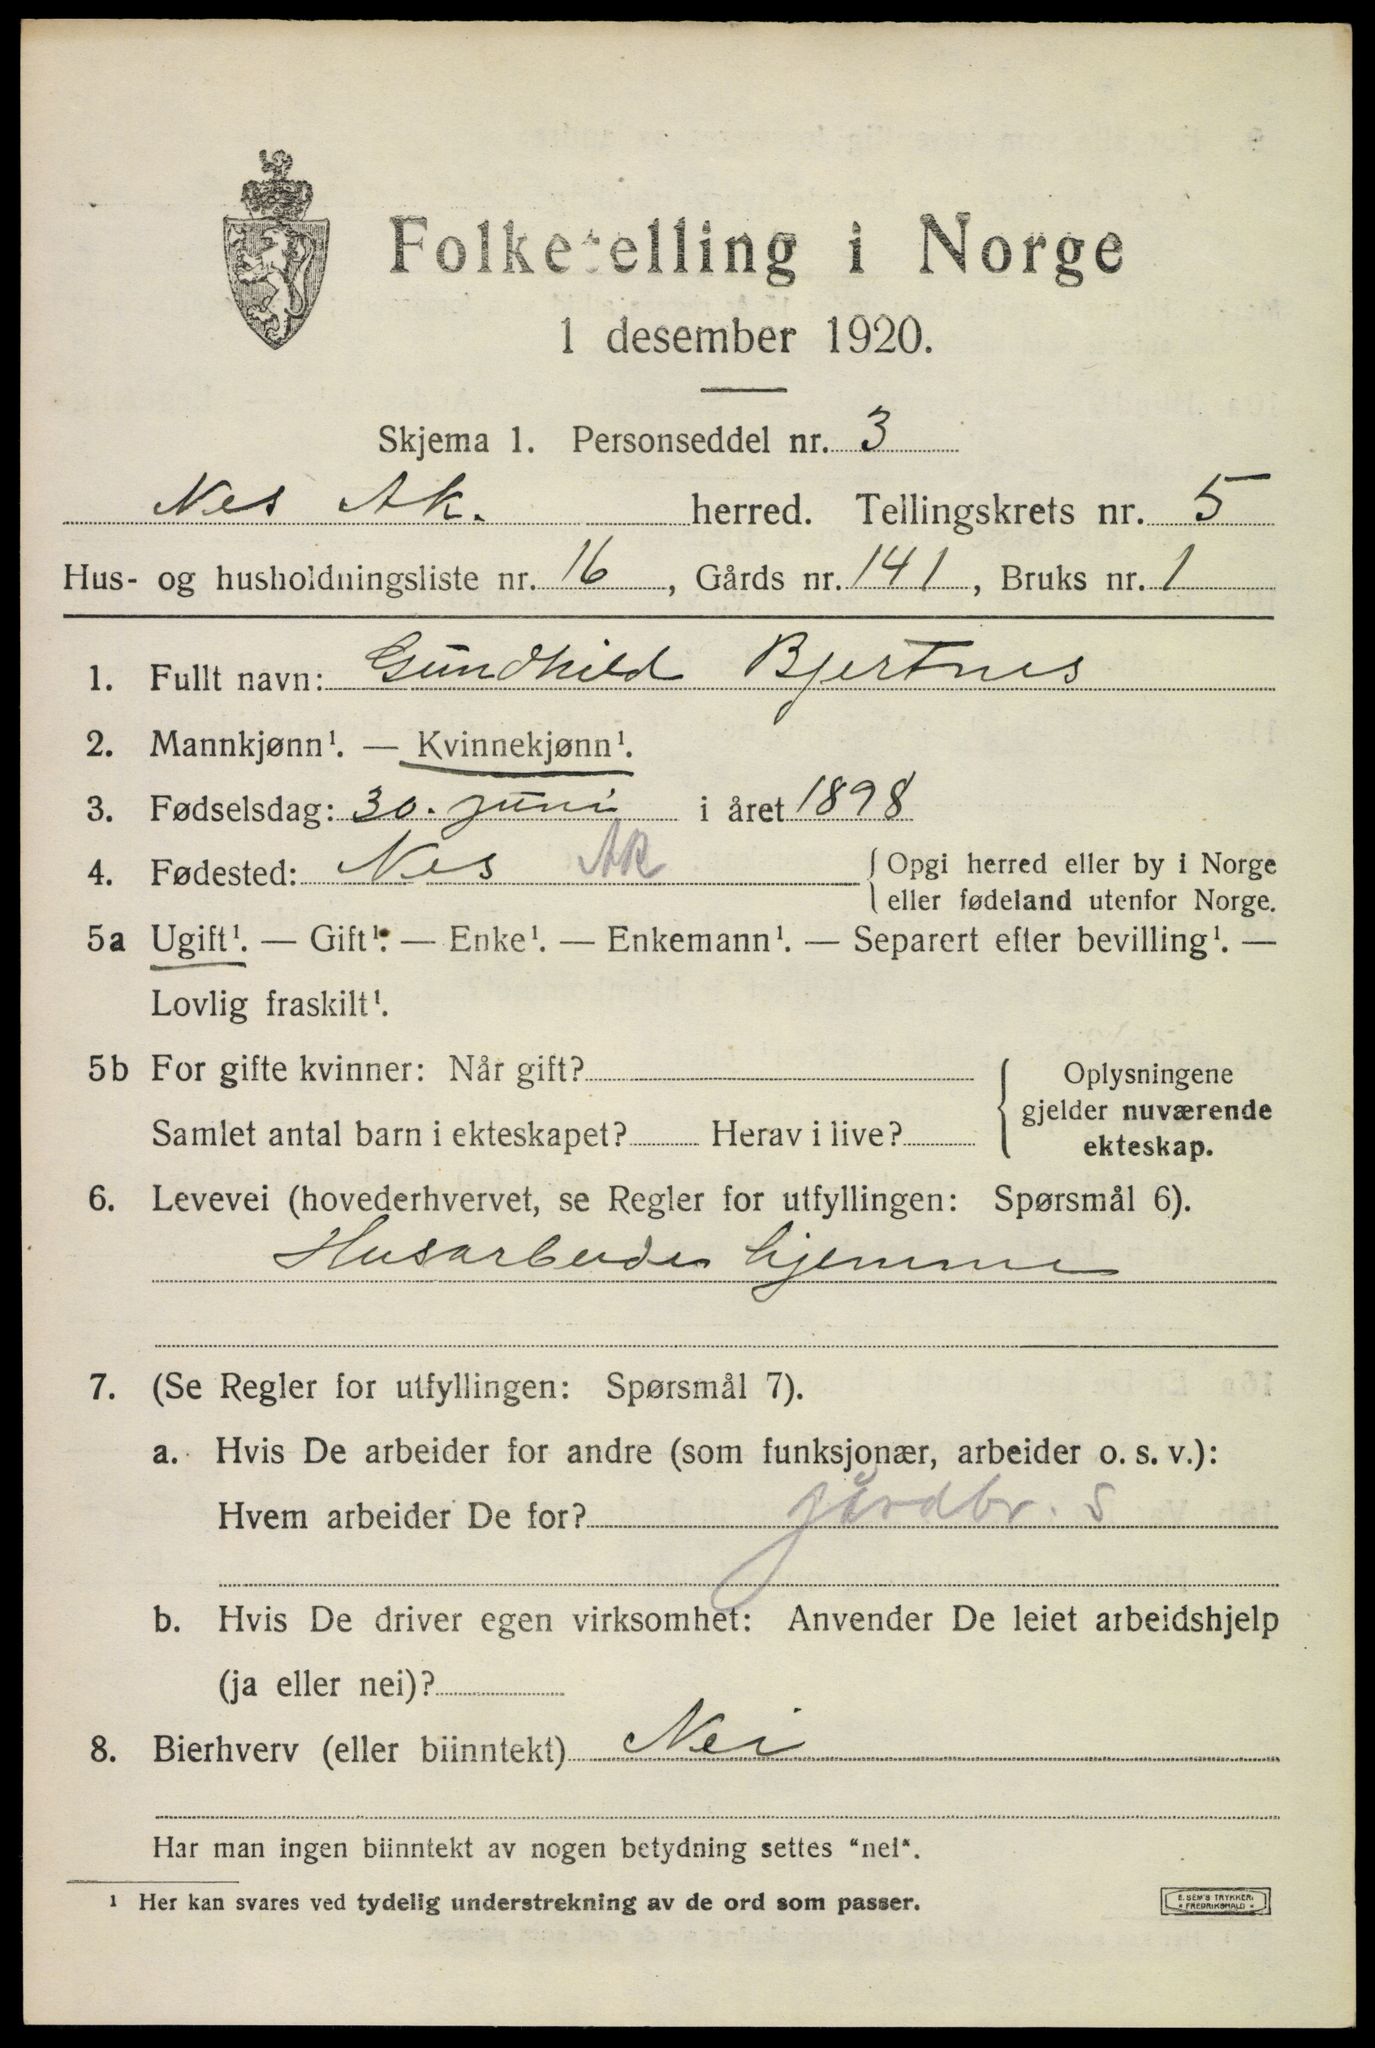 Folketelling i Norge
1 desember 1920.
Skjema 1. Personseddel nr. 3
Nes Ak. herred. Tellingskrets nr. 5
Hus- og husholdningsliste nr. 16, Gårds nr. 141, Bruks nr. 1
1. Fullt navn: Gundhild Bjertnes
2. Mannkjønn¹. — Kvinnekjønn¹.
3. Fødselsdag: 30. juni i året 1898
4. Fødested: Nes Ak { Opgi herred eller by i Norge
eller fødeland utenfor Norge.
5a Ugift¹. — Gift¹. — Enke¹. — Enkemann¹. — Separert efter bevilling¹. —
Lovlig fraskilt¹.
5b For gifte kvinner: Når gift?
Samlet antal barn i ekteskapet? Herav i live?
{ Oplysningene
gjelder nuværende
ekteskap.
6. Levevei (hovederhvervet, se Regler for utfyllingen: Spørsmål 6).
Husarbeide hjemme
7. (Se Regler for utfyllingen: Spørsmål 7).
a. Hvis De arbeider for andre (som funksjonær, arbeider o. s. v.):
Hvem arbeider De for? jordbr. S
b. Hvis De driver egen virksomhet: Anvender De leiet arbeidshjelp
(ja eller nei)?
8. Bierhverv (eller biinntekt) Nei
Har man ingen biinntekt av nogen betydning settes "nei".
¹ Her kan svares ved tydelig understrekning av de ord som passer.
E. SEM'S TRYKKERI
* FREDRIKSHALD *